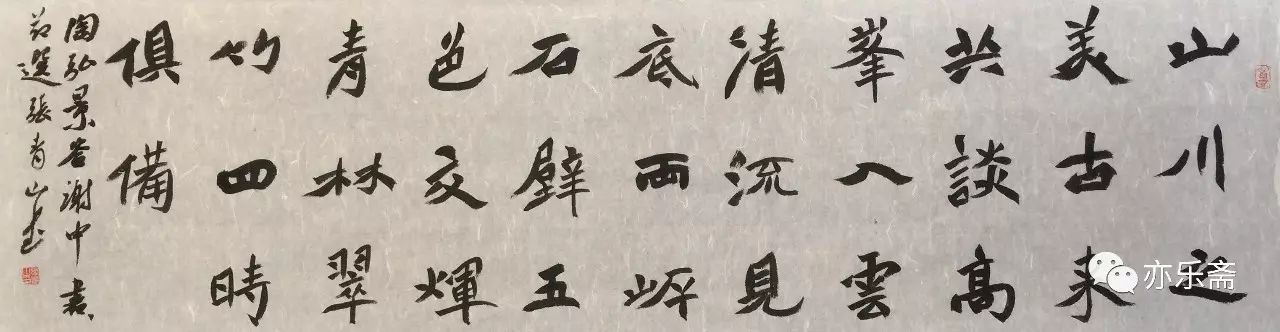 山川之
美古来
共談高
峯入雲
清流見
底兩岸
石壁五
色交輝
青林翠
竹四時
俱備
陶弘景答谢中書
节選張青山書
亦乐斋